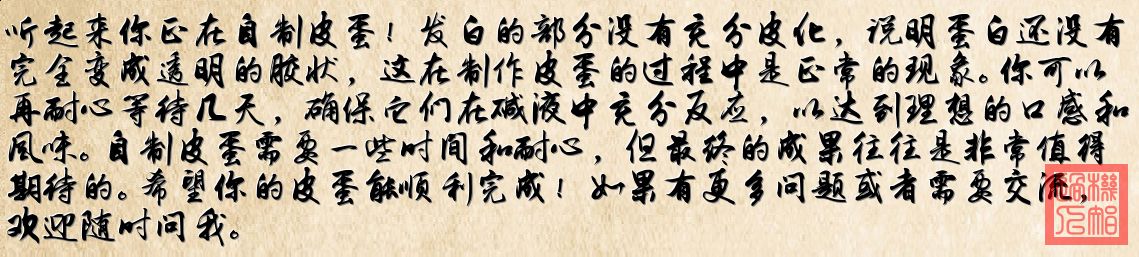 听起来你正在自制皮蛋！发白的部分没有充分皮化，说明蛋白还没有
完全变成透明的胶状，这在制作皮蛋的过程中是正常的现象。你可以
再耐心等待几天，确保它们在碱液中充分反应，以达到理想的口感和
风味。自制皮蛋需要一些时间和耐心，但最终的成果往往是非常值得
期待的。希望你的皮蛋能顺利完成！如果有更多问题或者需要交流，
欢迎随时问我。